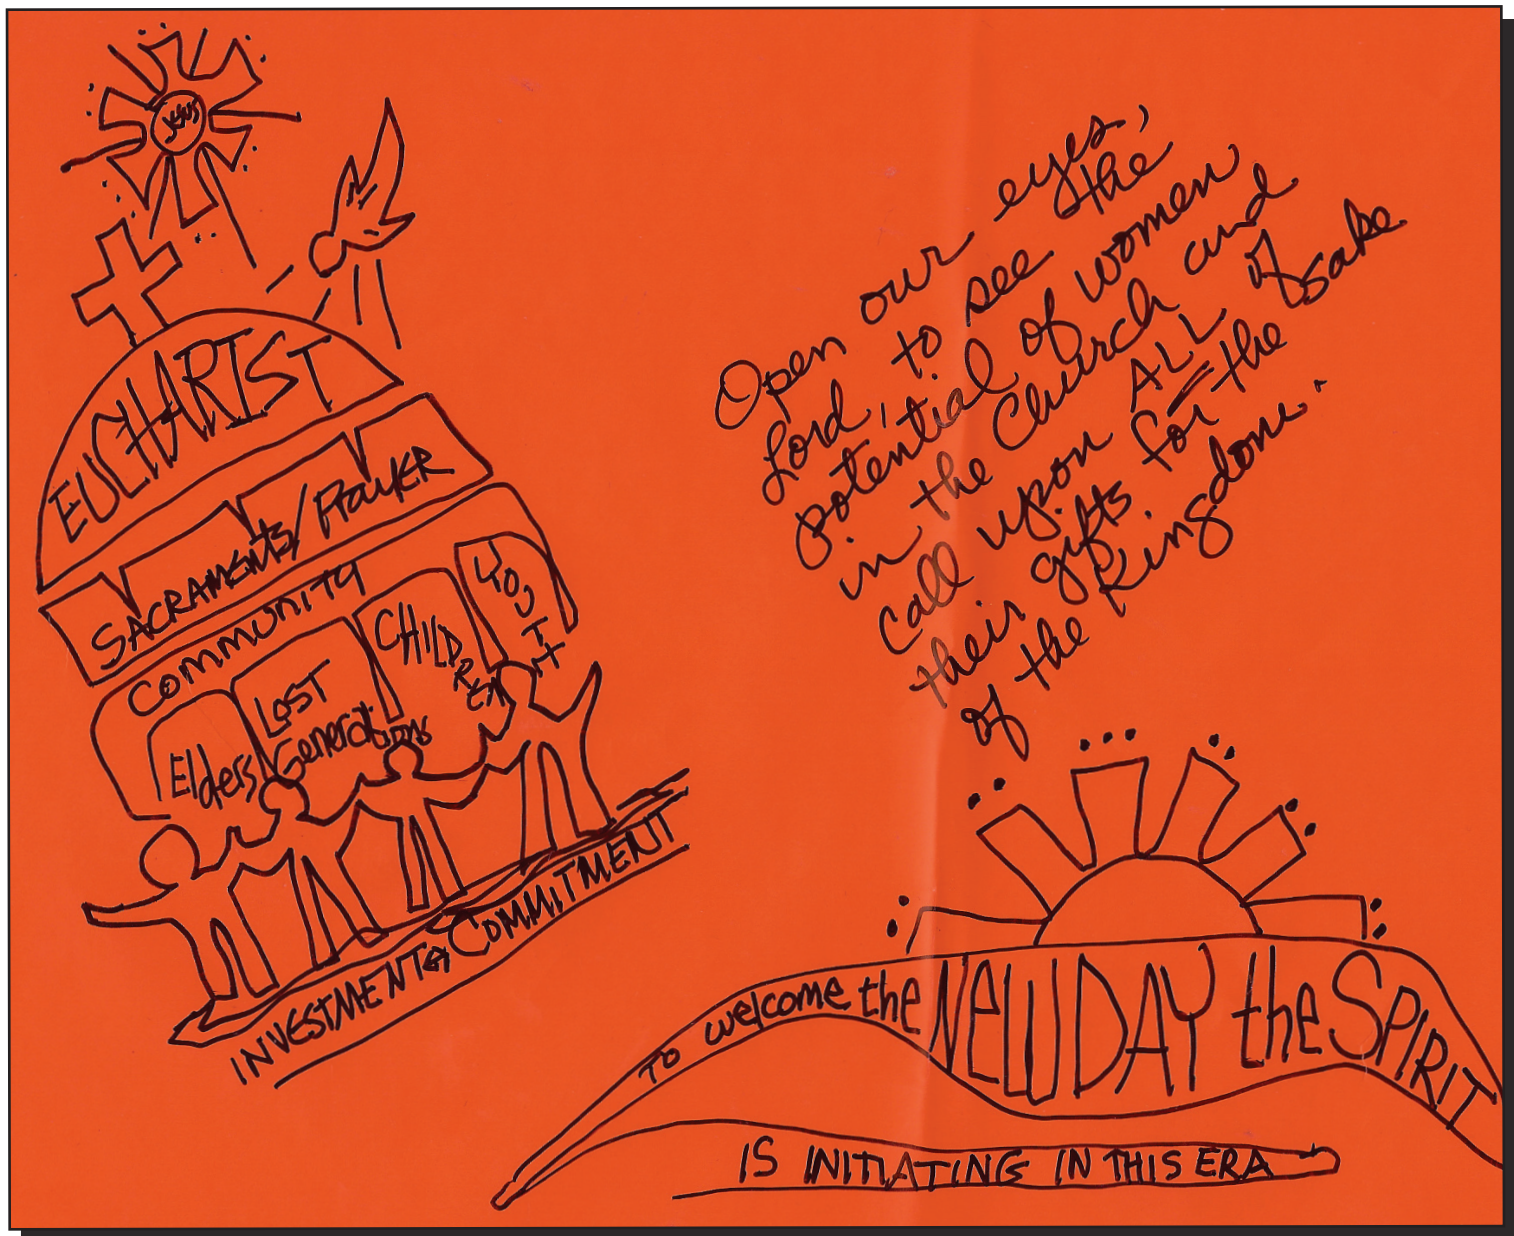 Jesus
EUCHARIST
SACRAMENTS/PRAYER
COMMUNITY
Elders
LOST
Generations
CHILDREN
YOUTH
INVESTMENT & COMMITMENT
Open our eyes,
Lord, to see the
potential of women
in the Church and
call upon ALL of
their gifts for the sake
of the Kingdom.
TO welcome the NEW DAY the SPIRIT
IS INITIATING IN THIS ERA